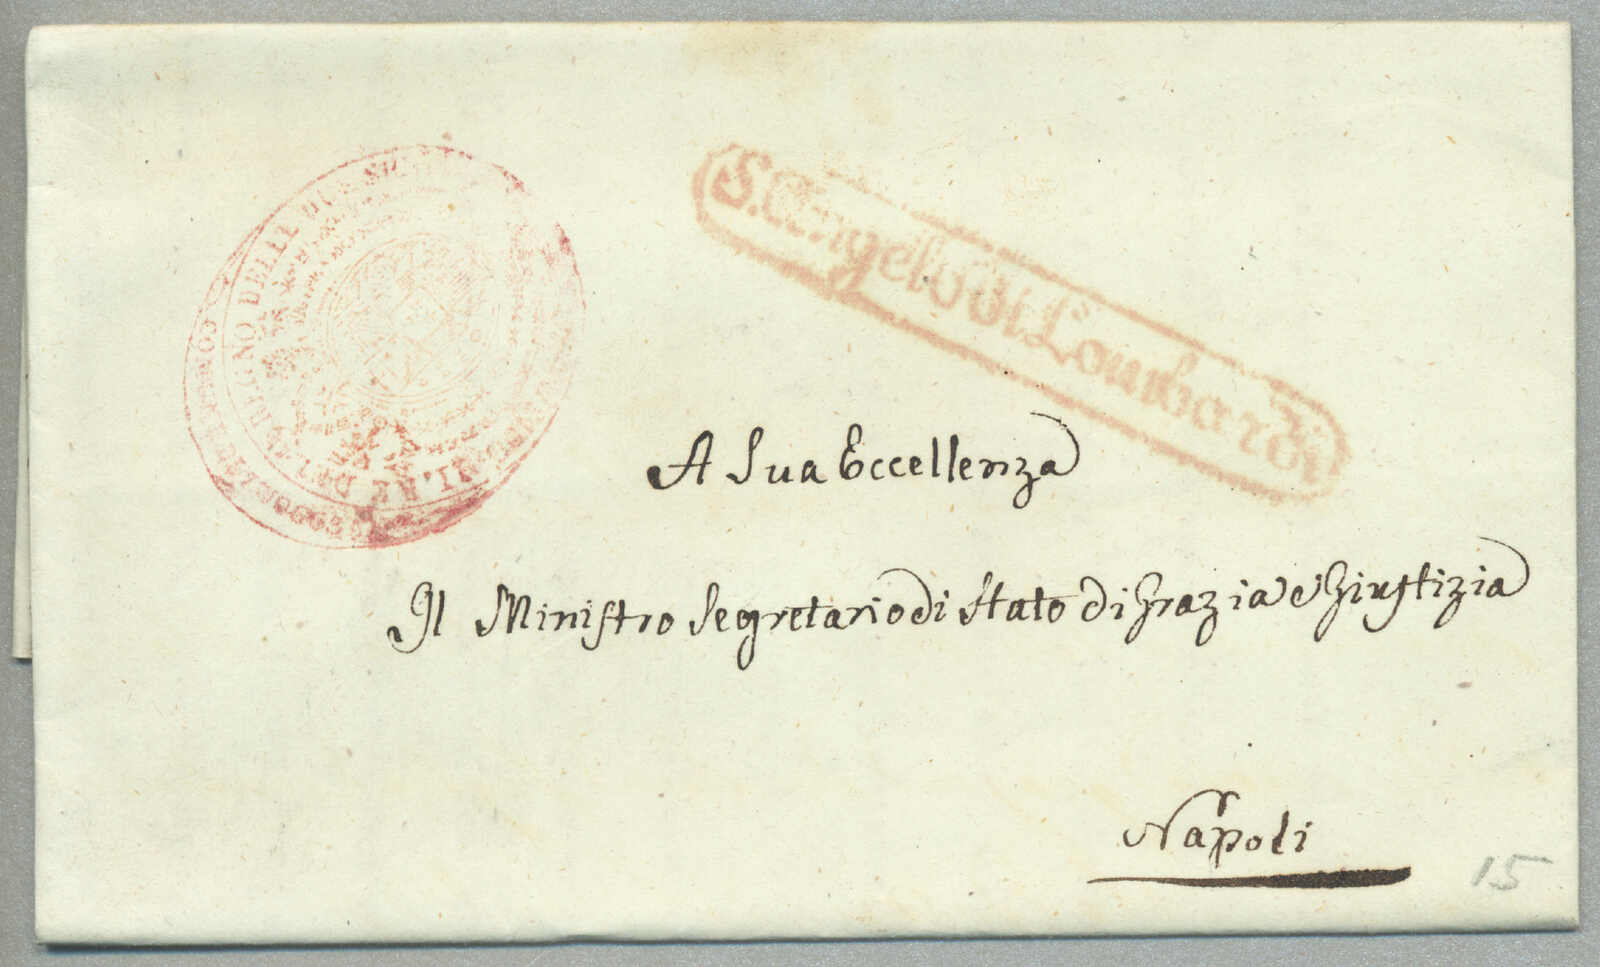 REGNO DELLE DUE SICILIE
S. Angelo di Lombardi
A Sua Eccellenza
Il Ministro Segretario di Stato di Grazia e Giustizia
Napoli
15